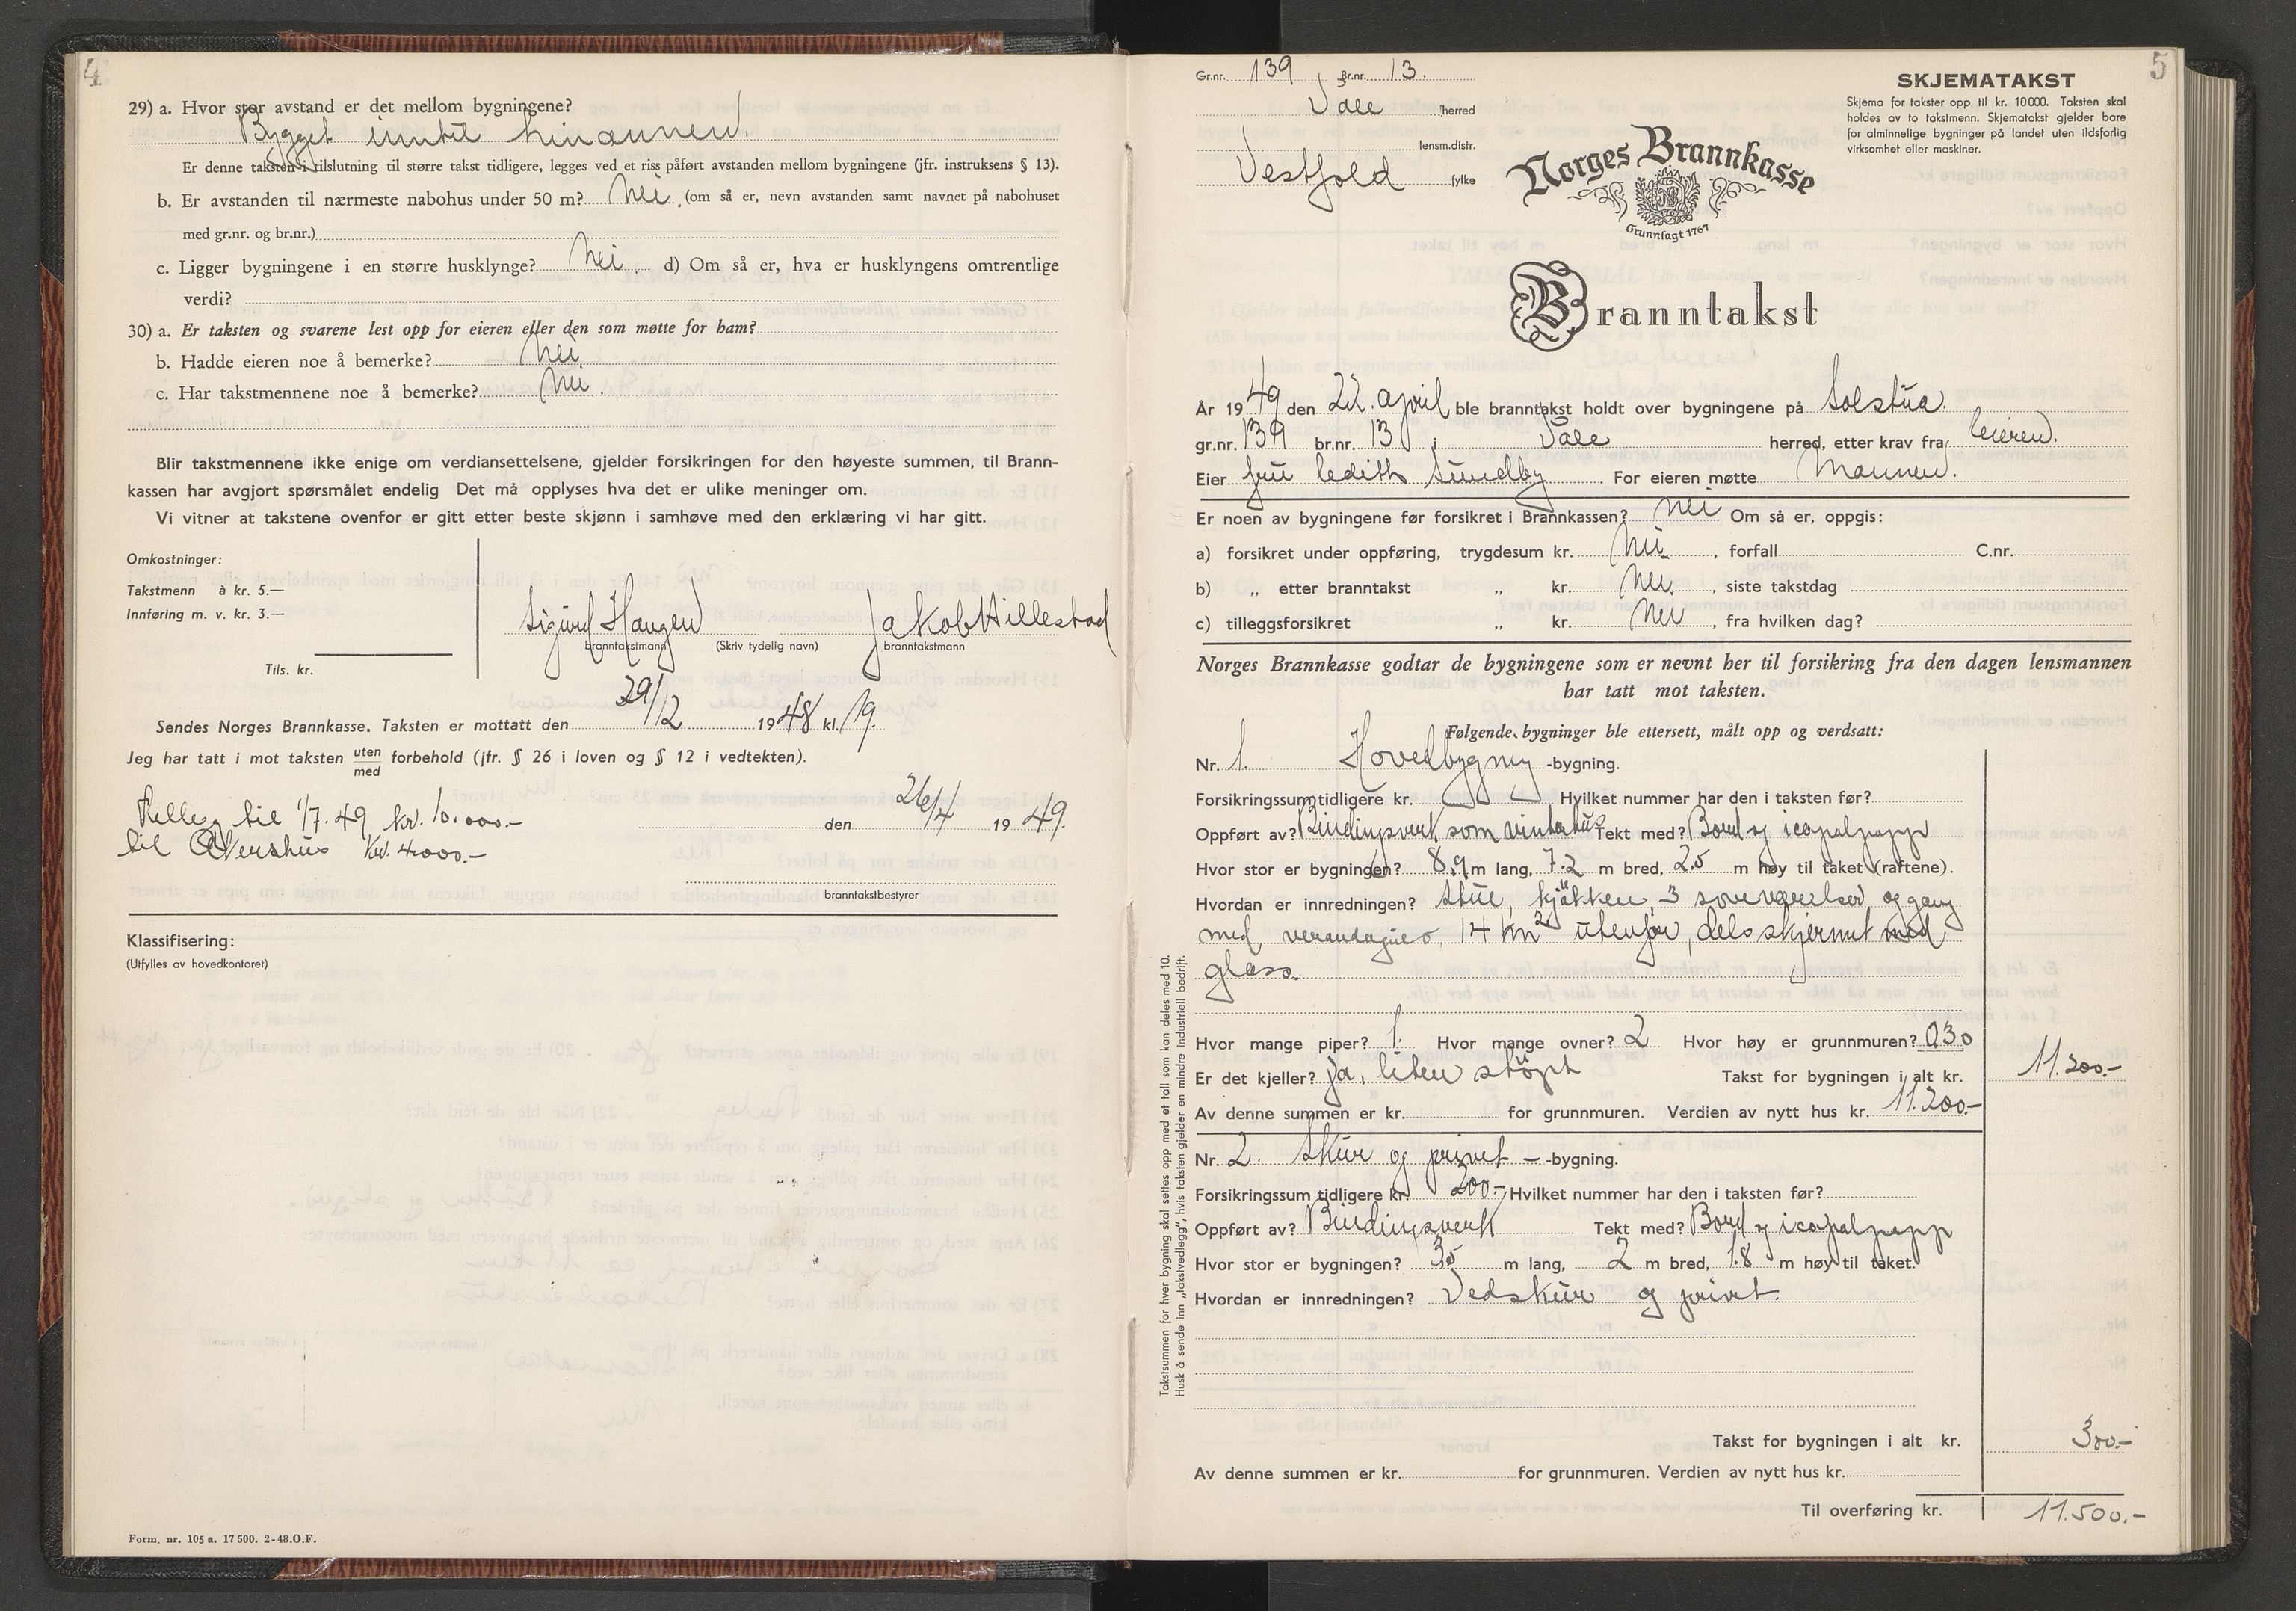 4
29) a. Hvor stor avstand er det mellom bygningene?
Bygget inntil hinannen.
Er denne taksten i tilslutning til større takst tidligere, legges ved et riss påført avstanden mellom bygningene (jfr. instruksens § 13).
b. Er avstanden til nærmeste nabohus under 50 m? Nei. (om så er, nevn avstanden samt navnet på nabohuset
med gr.nr. og br.nr.)
c. Ligger bygningene i en større husklynge? Nei. d) Om så er, hva er husklyngens omtrentlige
verdi?
30) a. Er taksten og svarene lest opp for eieren eller den som møtte for ham?
b. Hadde eieren noe å bemerke? Nei
c. Har takstmennene noe å bemerke? Nei.
Blir takstmennene ikke enige om verdiansettelsene, gjelder forsikringen for den høyeste summen, til Brann-
kassen har avgjort spørsmålet endelig Det må opplyses hva det er ulike meninger om.
Vi vitner at takstene ovenfor er gitt etter beste skjønn i samhøve med den erklæring vi har gitt.
Omkostninger:
Takstmenn à kr. 5.—
Innføring m. v. kr. 3.—
Tils. kr.
Sigurd Haugen Jakob Hillestad
branntakstmann (Skriv tydelig navn) branntakstmann
Sendes Norges Brannkasse. Taksten er mottatt den 29/12 1948 kl. 19.
Jeg har tatt i mot taksten uten
med forbehold (jfr. § 26 i loven og § 12 i vedtekten).
til 1/7.49 kr. 10.000.-
den 26/4 1949.
til Kr. 4000.-
branntakstbestyrer
Klassifisering:
(Utfylles av hovedkontoret)
Form. nr. 105 a. 17 500. 2-48.O.F.
5
Gr.nr. 139 Br.nr. 13.
Våle herred
lensm.distr.
Vestfold fylke
SKJEMATAKST
Skjema for takster opp til kr. 10 000. Taksten skal
holdes av to takstmenn. Skjematakst gjelder bare
for alminnelige bygninger på landet uten ildsfarlig
virksomhet eller maskiner.
Norges Brannkasse
Grunnlagt 1767
Branntakst
År 1949 den 22. april ble branntakst holdt over bygningene på Solstua.
gr.nr. 139 br.nr. 13 i Våle herred, etter krav fra eieren.
Eier fru Edith Sundby. For eieren møtte Mannen.
Er noen av bygningene før forsikret i Brannkassen? nei Om så er, oppgis:
a) forsikret under oppføring, trygdesum kr. Nei, forfall C.nr.
b) „ etter branntakst „ kr. Nei., siste takstdag
c) tilleggsforsikret „ kr. Nei, fra hvilken dag?
Norges Brannkasse godtar de bygningene som er nevnt her til forsikring fra den dagen lensmannen
har tatt mot taksten.
Følgende bygninger ble ettersett, målt opp og verdsatt:
Nr. 1. Hovedbygning -bygning.
Forsikringssum tidligere kr. Hvilket nummer har den i taksten før?
Oppført av? Bindingsverk som vinterhus Tekt med? Bord og icopalpapp
Hvor stor er bygningen? 8.9 m lang, 7.2 m bred, 2.5 m høy til taket (raftene).
Hvordan er innredningen? Stue, kjøkken, 3 soveværelser og gang
med 14 m² utenfor, dels skjermet med
glass.
Hvor mange piper? 1. Hvor mange ovner? 2 Hvor høy er grunnmuren? 0.30
Er det kjeller? ja, liten støpt Takst for bygningen i alt kr. 11.200.-
Av denne summen er kr. for grunnmuren. Verdien av nytt hus kr. 11.200.-
Nr. 2. Skur og privet — -bygning.
Forsikringssum tidligere kr. 200.- Hvilket nummer har den i taksten før?
Oppført av? Bindingsverk Tekt med? Bord og icopalpapp
Hvor stor er bygningen? 3.5 m lang, 2 m bred, 1.8 m høy til taket.
Hvordan er innredningen? Vedskur og privet.
Takst for bygningen i alt kr. 300.-
Av denne summen er kr. for grunnmuren. Verdien av nytt hus kr.
Til overføring kr. 11.500.-
Takstsummen for hver bygning skal settes opp med et tall som kan deles med 10.
Husk å sende inn „takstvedlegg", hvis taksten gjelder en mindre industriell bedrift.